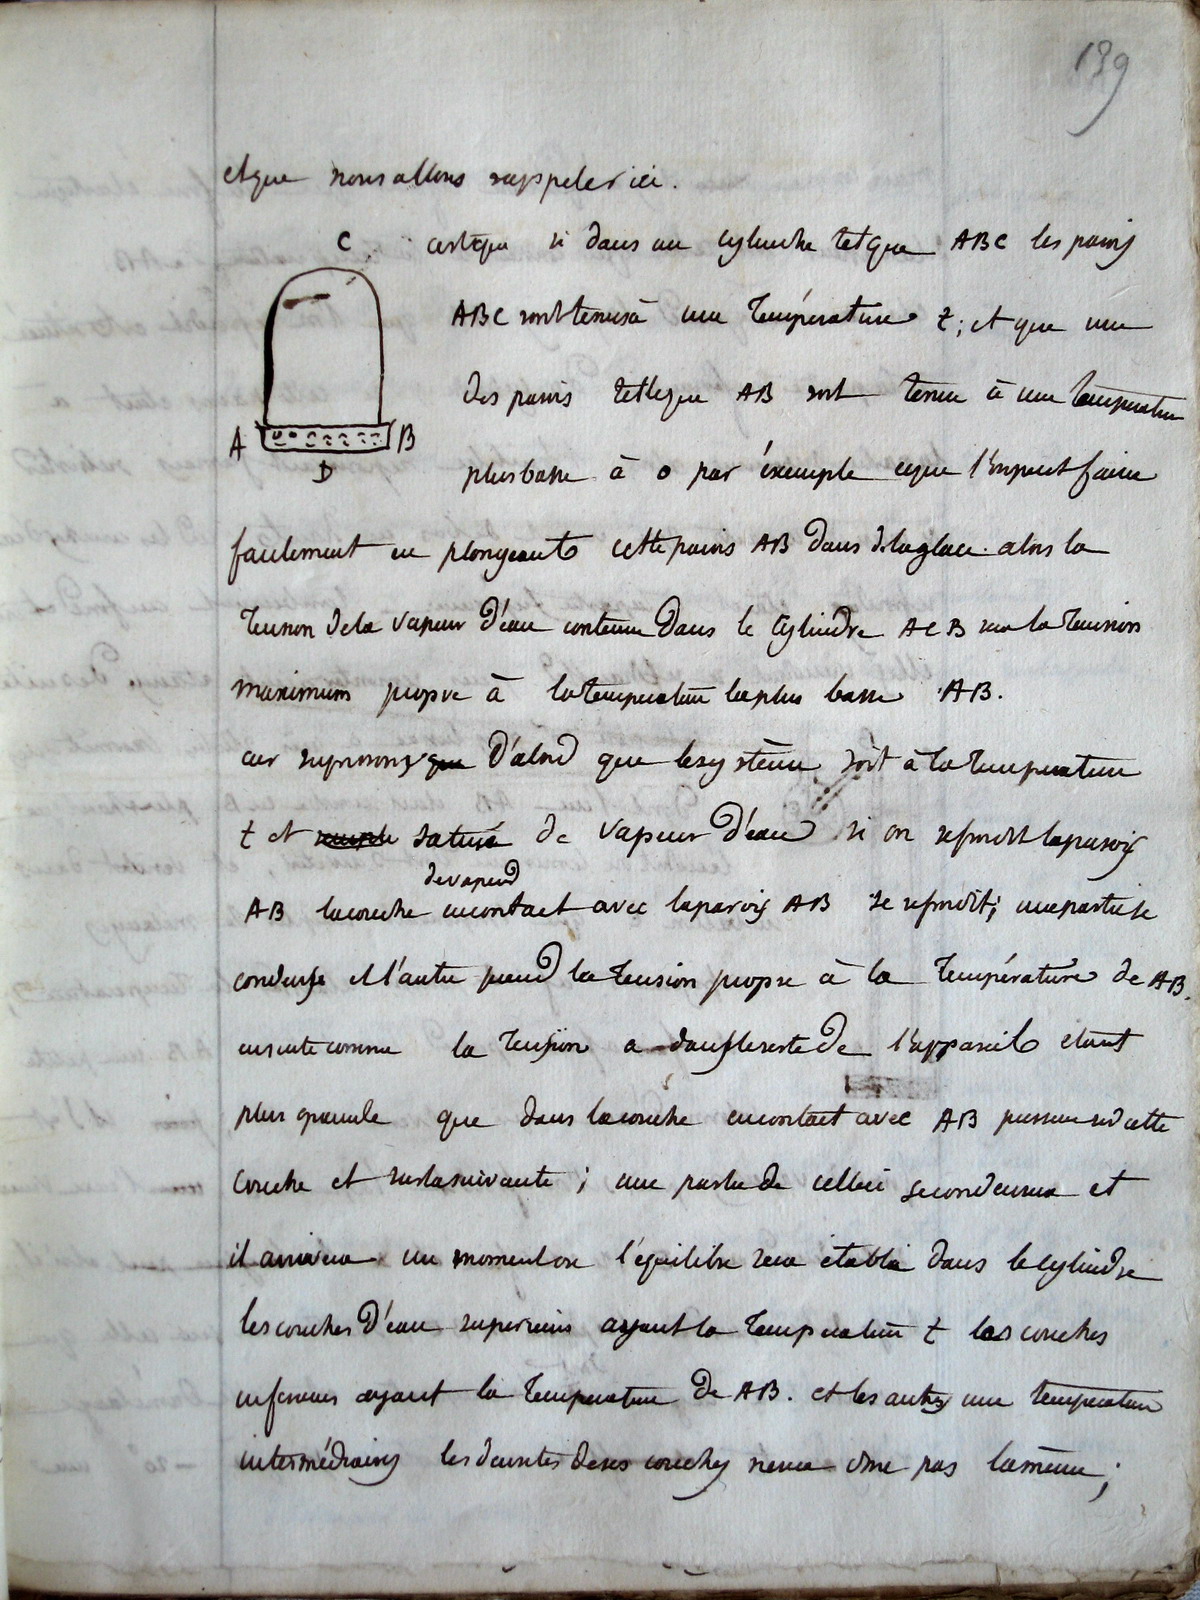 139
et que nous allons rappeler ici.
C
c'est que si dans un cylindre tel que ABC les parois
ABC sont tenus à une température t; et que une
des parois telle que AB soit tenue à une température
A B
D
plus basse à 0 par éxemple ce que l'on peut faire
facilement en plongeant cette parois AB dans de la glace. alors la
tension de la vapeur d'eau contenue dans le cylindre ACB sera la tension
maximum propre à la température la plus basse AB.
car supposons que D'abord que le système soit à la température
t et saturé de vapeur d'eau si on refroidit la parois
de vapeur
AB la couche en contact avec la parois AB se refroidit; une partie se
condense et l'autre prend la tension propre à la température de AB.
ensuite comme la tension a dans le reste de l'appareil étant
plus grande que dans la couche en contact avec AB presse sur cette
couche et sur la suivante; une partie de celle ci se condensera et
il arrivera un moment ou l'équilibre sera établi dans le cylindre
les couches d'eau superieures ayant la température t les couches
inferieures ayant la température de AB. et les autres une température
intermédiaires les densités de ces couches ne sera donc pas la même;